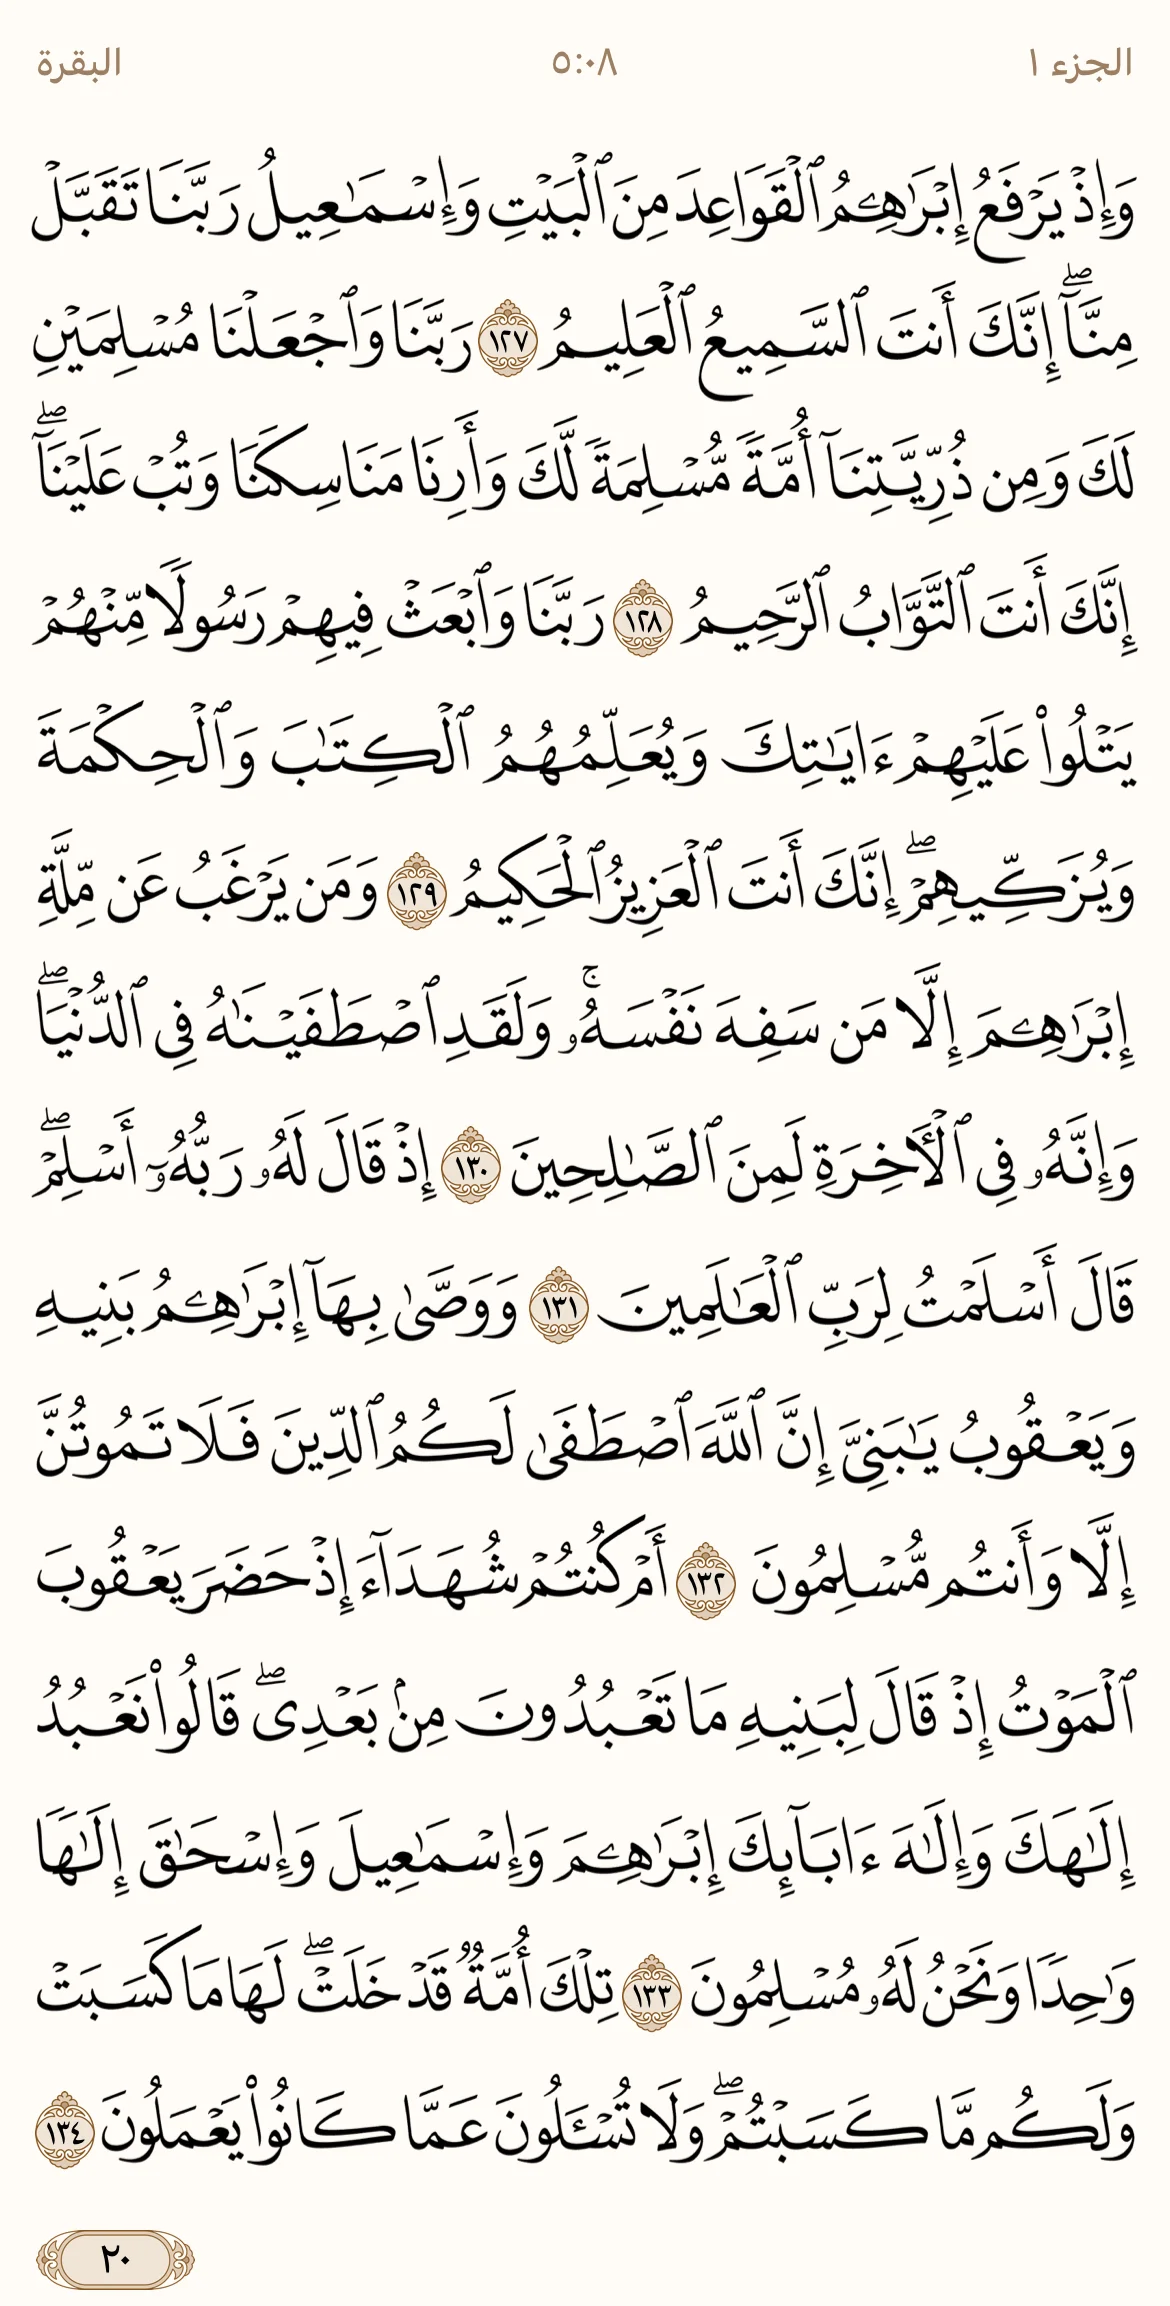 الجزء ١
٥:٠٨
البقرة
وَإِذۡ يَرۡفَعُ إِبۡرَٰهِـۧمُ ٱلۡقَوَاعِدَ مِنَ ٱلۡبَيۡتِ وَإِسۡمَٰعِيلُ رَبَّنَا تَقَبَّلۡ
مِنَّآۖ إِنَّكَ أَنتَ ٱلسَّمِيعُ ٱلۡعَلِيمُ ١٢٧ رَبَّنَا وَٱجۡعَلۡنَا مُسۡلِمَيۡنِ
لَكَ وَمِن ذُرِّيَّتِنَآ أُمَّةٗ مُّسۡلِمَةٗ لَّكَ وَأَرِنَا مَنَاسِكَنَا وَتُبۡ عَلَيۡنَآۖ
إِنَّكَ أَنتَ ٱلتَّوَّابُ ٱلرَّحِيمُ ١٢٨ رَبَّنَا وَٱبۡعَثۡ فِيهِمۡ رَسُولٗا مِّنۡهُمۡ
يَتۡلُواْ عَلَيۡهِمۡ ءَايَٰتِكَ وَيُعَلِّمُهُمُ ٱلۡكِتَٰبَ وَٱلۡحِكۡمَةَ
وَيُزَكِّيهِمۡۖ إِنَّكَ أَنتَ ٱلۡعَزِيزُ ٱلۡحَكِيمُ ١٢٩ وَمَن يَرۡغَبُ عَن مِّلَّةِ
إِبۡرَٰهِـۧمَ إِلَّا مَن سَفِهَ نَفۡسَهُۥۚ وَلَقَدِ ٱصۡطَفَيۡنَٰهُ فِي ٱلدُّنۡيَاۖ
وَإِنَّهُۥ فِي ٱلۡأٓخِرَةِ لَمِنَ ٱلصَّٰلِحِينَ ١٣٠ إِذۡ قَالَ لَهُۥ رَبُّهُۥٓ أَسۡلِمۡۖ
قَالَ أَسۡلَمۡتُ لِرَبِّ ٱلۡعَٰلَمِينَ ١٣١ وَوَصَّىٰ بِهَآ إِبۡرَٰهِـۧمُ بَنِيهِ
وَيَعۡقُوبُ يَٰبَنِيَّ إِنَّ ٱللَّهَ ٱصۡطَفَىٰ لَكُمُ ٱلدِّينَ فَلَا تَمُوتُنَّ
إِلَّا وَأَنتُم مُّسۡلِمُونَ ١٣٢ أَمۡ كُنتُمۡ شُهَدَآءَ إِذۡ حَضَرَ يَعۡقُوبَ
ٱلۡمَوۡتُ إِذۡ قَالَ لِبَنِيهِ مَا تَعۡبُدُونَ مِنۢ بَعۡدِيۖ قَالُواْ نَعۡبُدُ
إِلَٰهَكَ وَإِلَٰهَ ءَابَآئِكَ إِبۡرَٰهِـۧمَ وَإِسۡمَٰعِيلَ وَإِسۡحَٰقَ إِلَٰهٗا
وَٰحِدٗا وَنَحۡنُ لَهُۥ مُسۡلِمُونَ ١٣٣ تِلۡكَ أُمَّةٞ قَدۡ خَلَتۡۖ لَهَا مَا كَسَبَتۡ
وَلَكُم مَّا كَسَبۡتُمۡۖ وَلَا تُسۡـَٔلُونَ عَمَّا كَانُواْ يَعۡمَلُونَ ١٣٤
٢٠